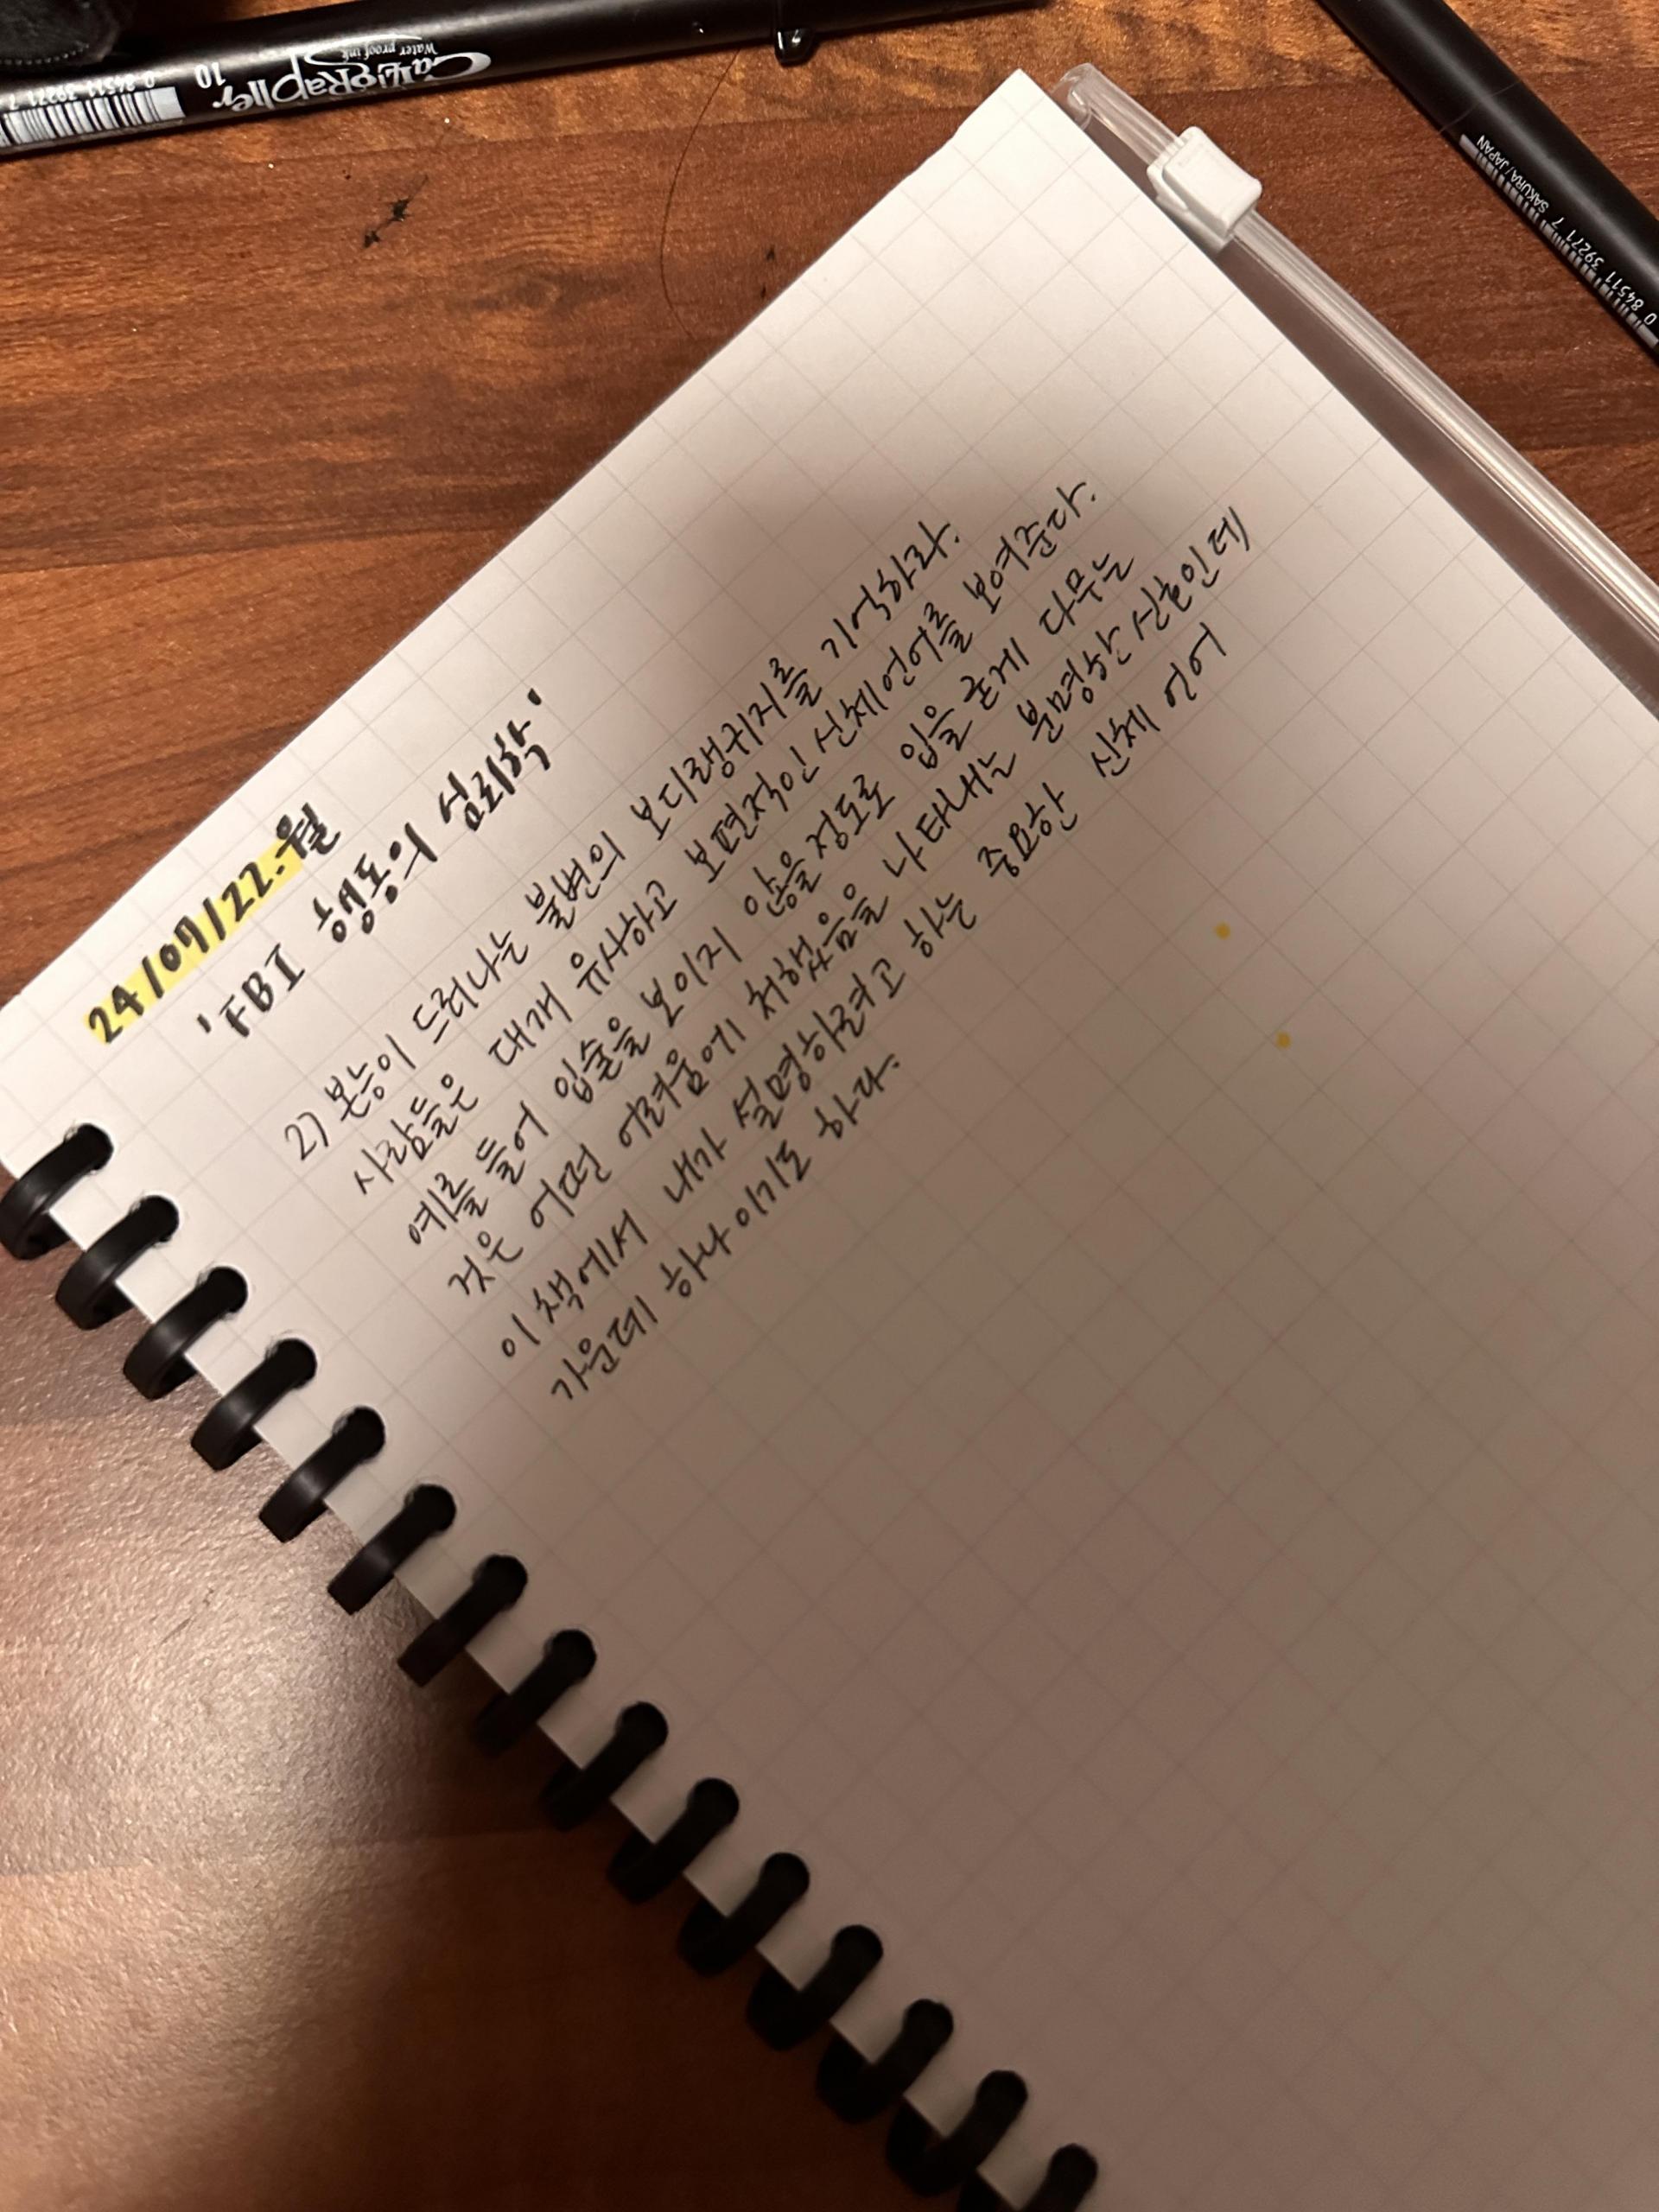 24/07/22.월
'FBI 행동의 심리학'
27 본능이 드러나는 불변의 보디랭귀지를 기억하라.
사람들은 대개 유사하고 보편적인 신체언어를 보여준다.
예를 들어 입술을 보이지 않을 정도로 입을 굳게 다무는
것은 어떤 어려움에 처했음을 나타내는 분명한 신호인데
이 책에서 내가 설명하려고 하는 중요한 신체 언어
가운데 하나이기도 하다.
CaLLigRapher
Water proof ink
10
0 84511 39271 7
0 84511 39271 7 SAKURA/JAPAN